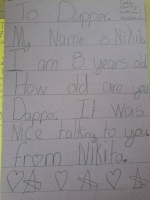 To Dapper.
My Name is Nikita
I am 8 years old
How old are you
Dapper. It was
Nice talking to you
from Nikita.